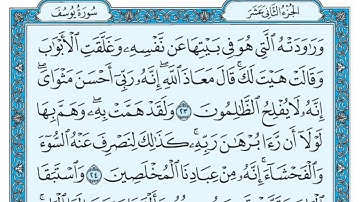 الجزء الثاني عشر
سورة يوسف
وَرَٰوَدَتْهُ ٱلَّتِى هُوَ فِى بَيْتِهَا عَن نَّفْسِهِۦ وَغَلَّقَتِ ٱلْأَبْوَٰبَ
وَقَالَتْ هَيْتَ لَكَ ۚ قَالَ مَعَاذَ ٱللَّهِ ۖ إِنَّهُۥ رَبِّىٓ أَحْسَنَ مَثْوَاىَ ۖ
إِنَّهُۥ لَا يُفْلِحُ ٱلظَّٰلِمُونَ ٢٣ وَلَقَدْ هَمَّتْ بِهِۦ ۖ وَهَمَّ بِهَا
لَوْلَآ أَن رَّءَا بُرْهَٰنَ رَبِّهِۦ ۚ كَذَٰلِكَ لِنَصْرِفَ عَنْهُ ٱلسُّوٓءَ
وَٱلْفَحْشَآءَ ۚ إِنَّهُۥ مِنْ عِبَادِنَا ٱلْمُخْلَصِينَ ٢٤ وَٱسْتَبَقَا